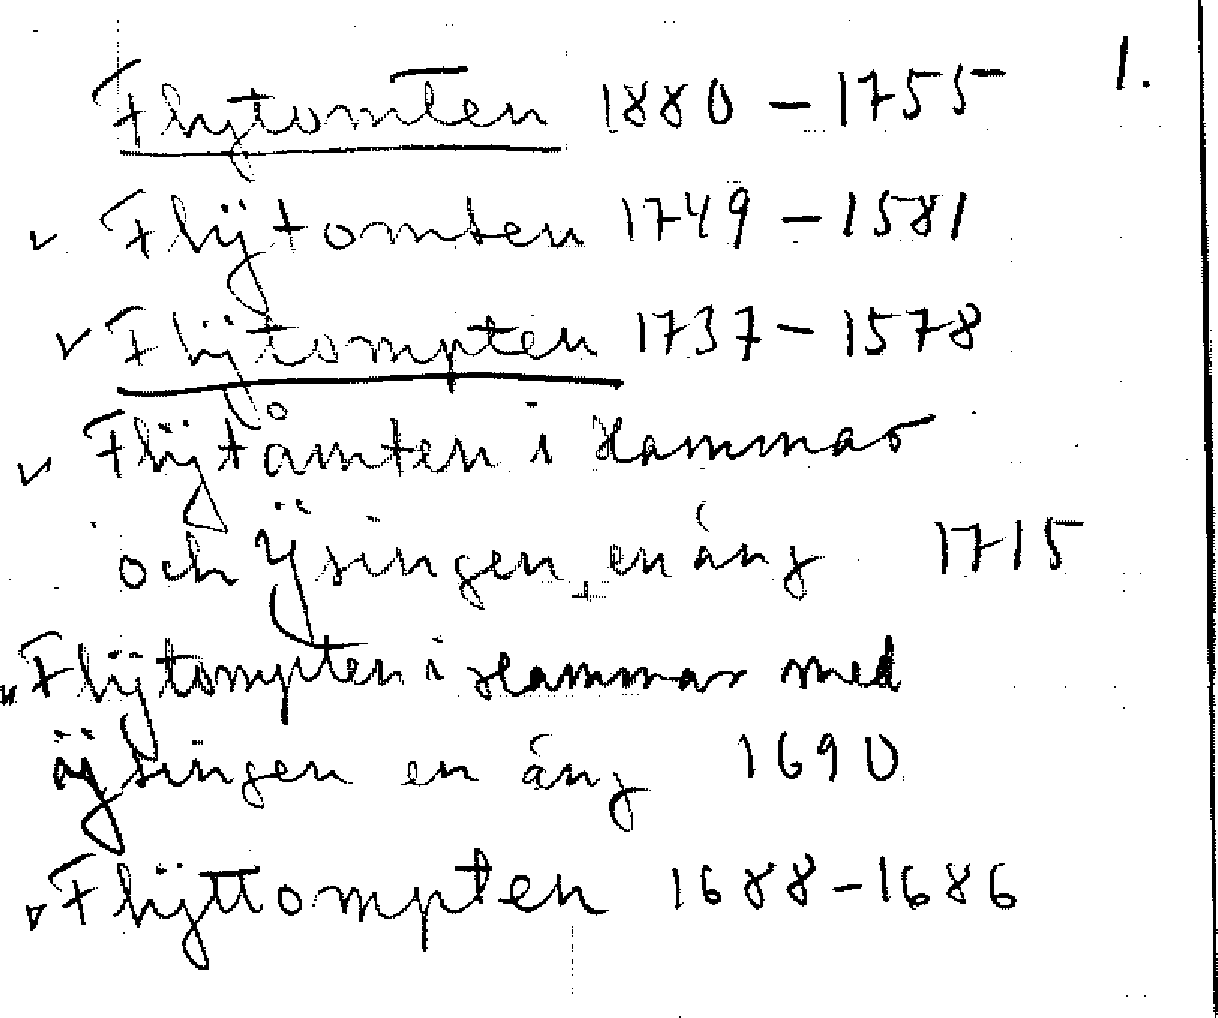 1.
Flytomten 1880 – 1755
v Flÿtomten 1749 – 1581
v Flÿtompten 1737 – 1578
v Flÿtåmten i Hammar
och Ÿsingen en äng 1715
v Flÿtompten i Hammar med
ÿsingen en äng 1690
v Flÿttompten 1688–1686